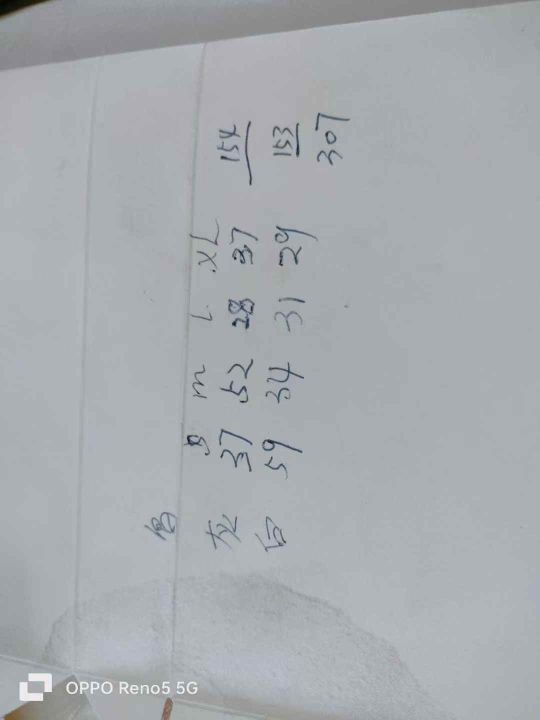 S m L XL
灰 37 52 28 37 154
白 59 34 31 29 153
307
OPPO Reno5 5G